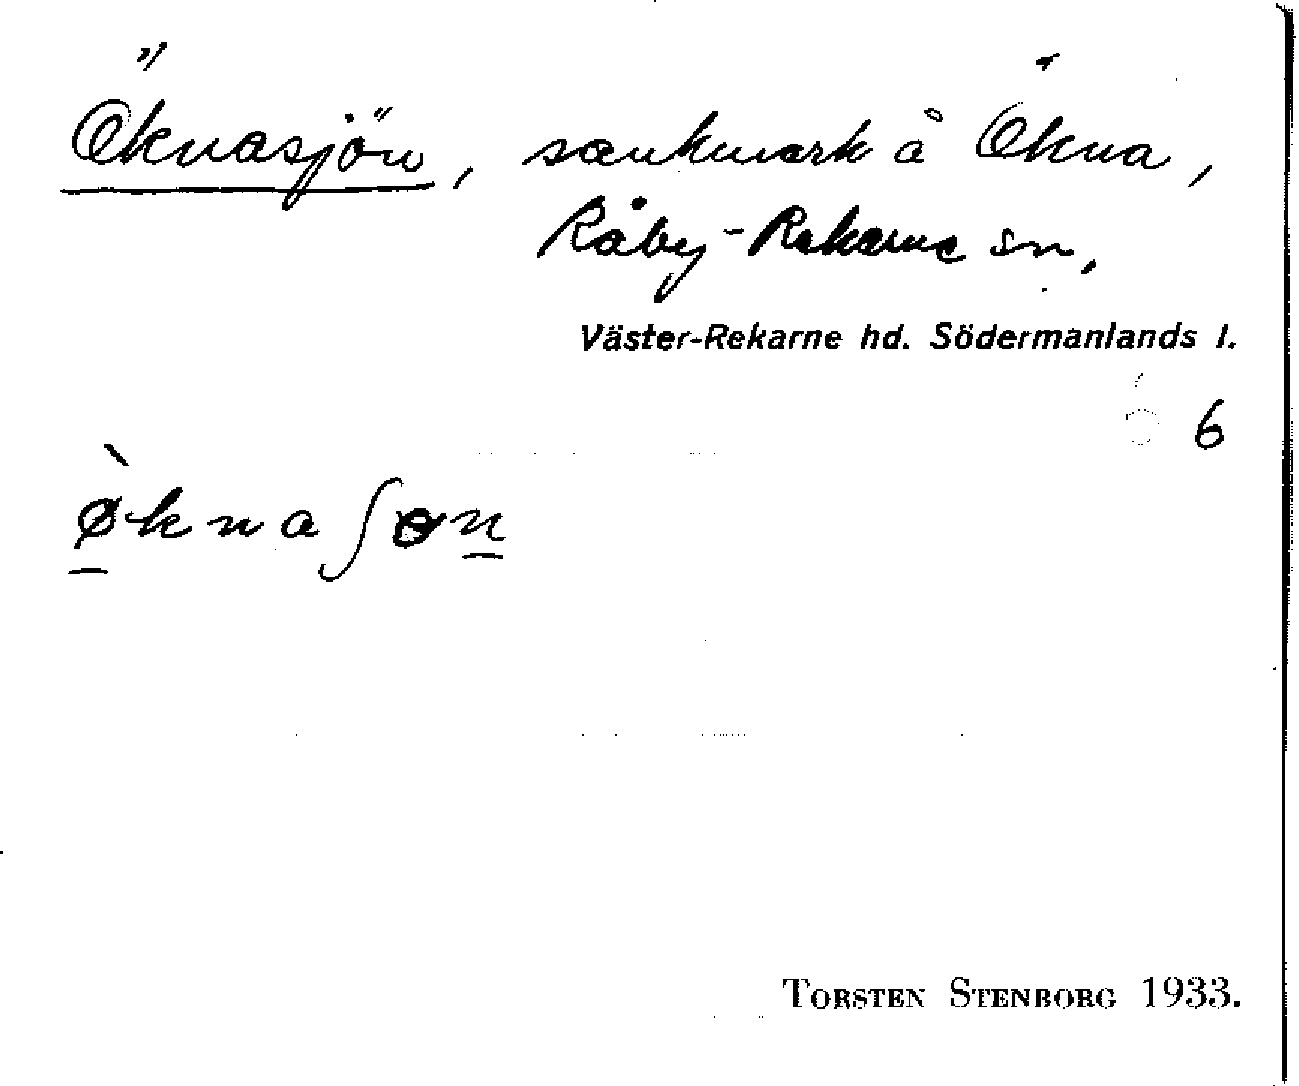 Öknasjön, sankmark å Ökna,
Råby-Rekarne sn.
Väster-Rekarne hd. Södermanlands l.
6
ø̀knaʃɵn
TORSTEN STENBORG 1933.